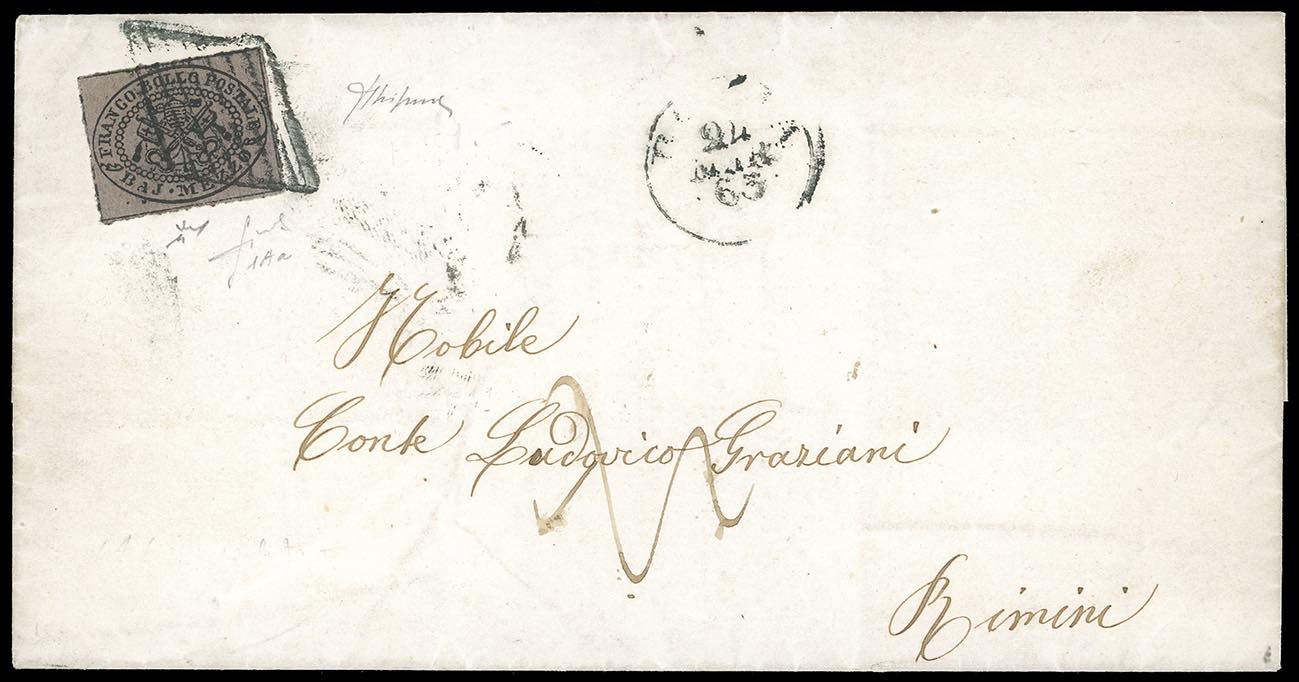 FRANCO BOLLO POSTALE
BAJ · MEZZO
24
63
Nobile
Conte Ludovico Graziani
Rimini